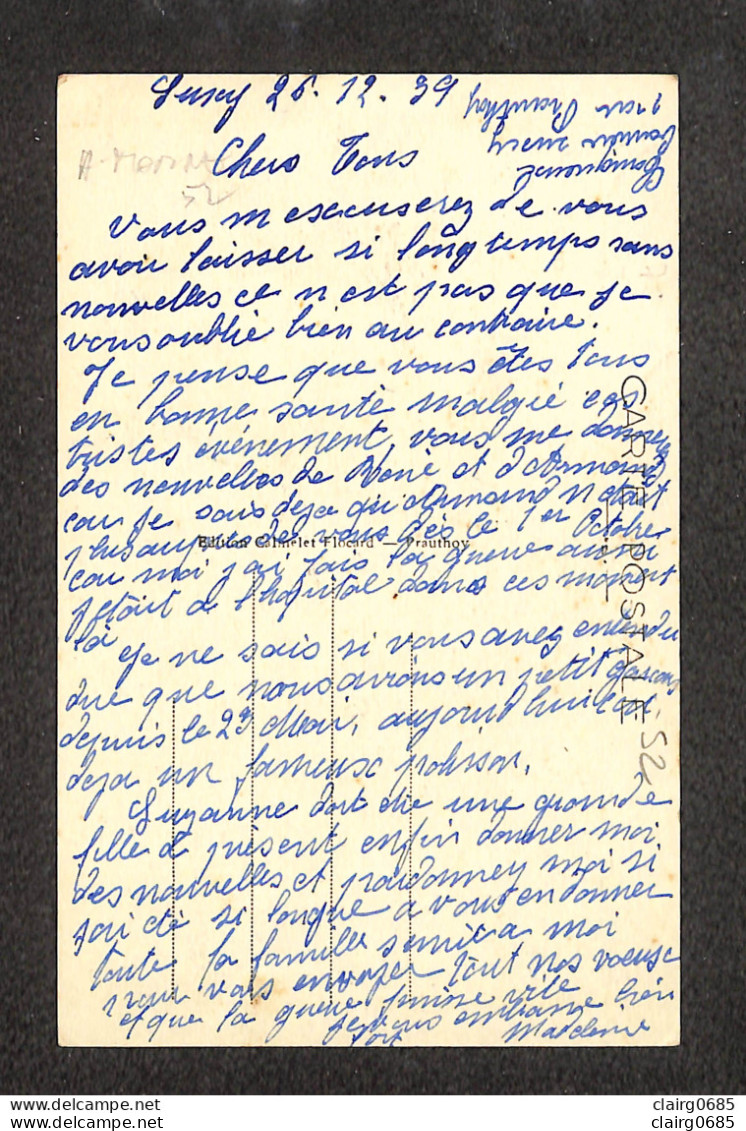 26. 12. 39
Chers Tous
Vous m excuserez de vous
avoir laisser si longtemps sans
nouvelles ce n est pas que je
vous oublié bien au contraire.
Je pense que vous êtes tous
en bonne santé malgré ces
tristes événement, vous me donnerez
des nouvelles de René et d'Armand
car je sais deja qu'Armand n etait
plus auprès de vous dès le 1er Octobre
Edition Calmelet Flocard — Prauthoy
car moi j ai fais la guerre aussi
j etait a l hopital dans ces moment
là
Je ne sais si vous avez entendu
dire que nous avions un petit garçon
depuis le 29 Mai, aujourd hui c'est
deja un fameux polisson.
Suzanne doit etre une grande
fille a présent enfin donner moi
des nouvelles et pardonnez moi si
j'ai été si longue a vous en donner
toute la famille s'unie a moi
pour vous envoyer tout nos voeux
et que la guerre finisse vite
Je vous embrasse bien
fort Madeleine
pour Prauthoy
CARTE POSTALE
52
52
clairg0685
clairg0685
clairg0685
clairg0685